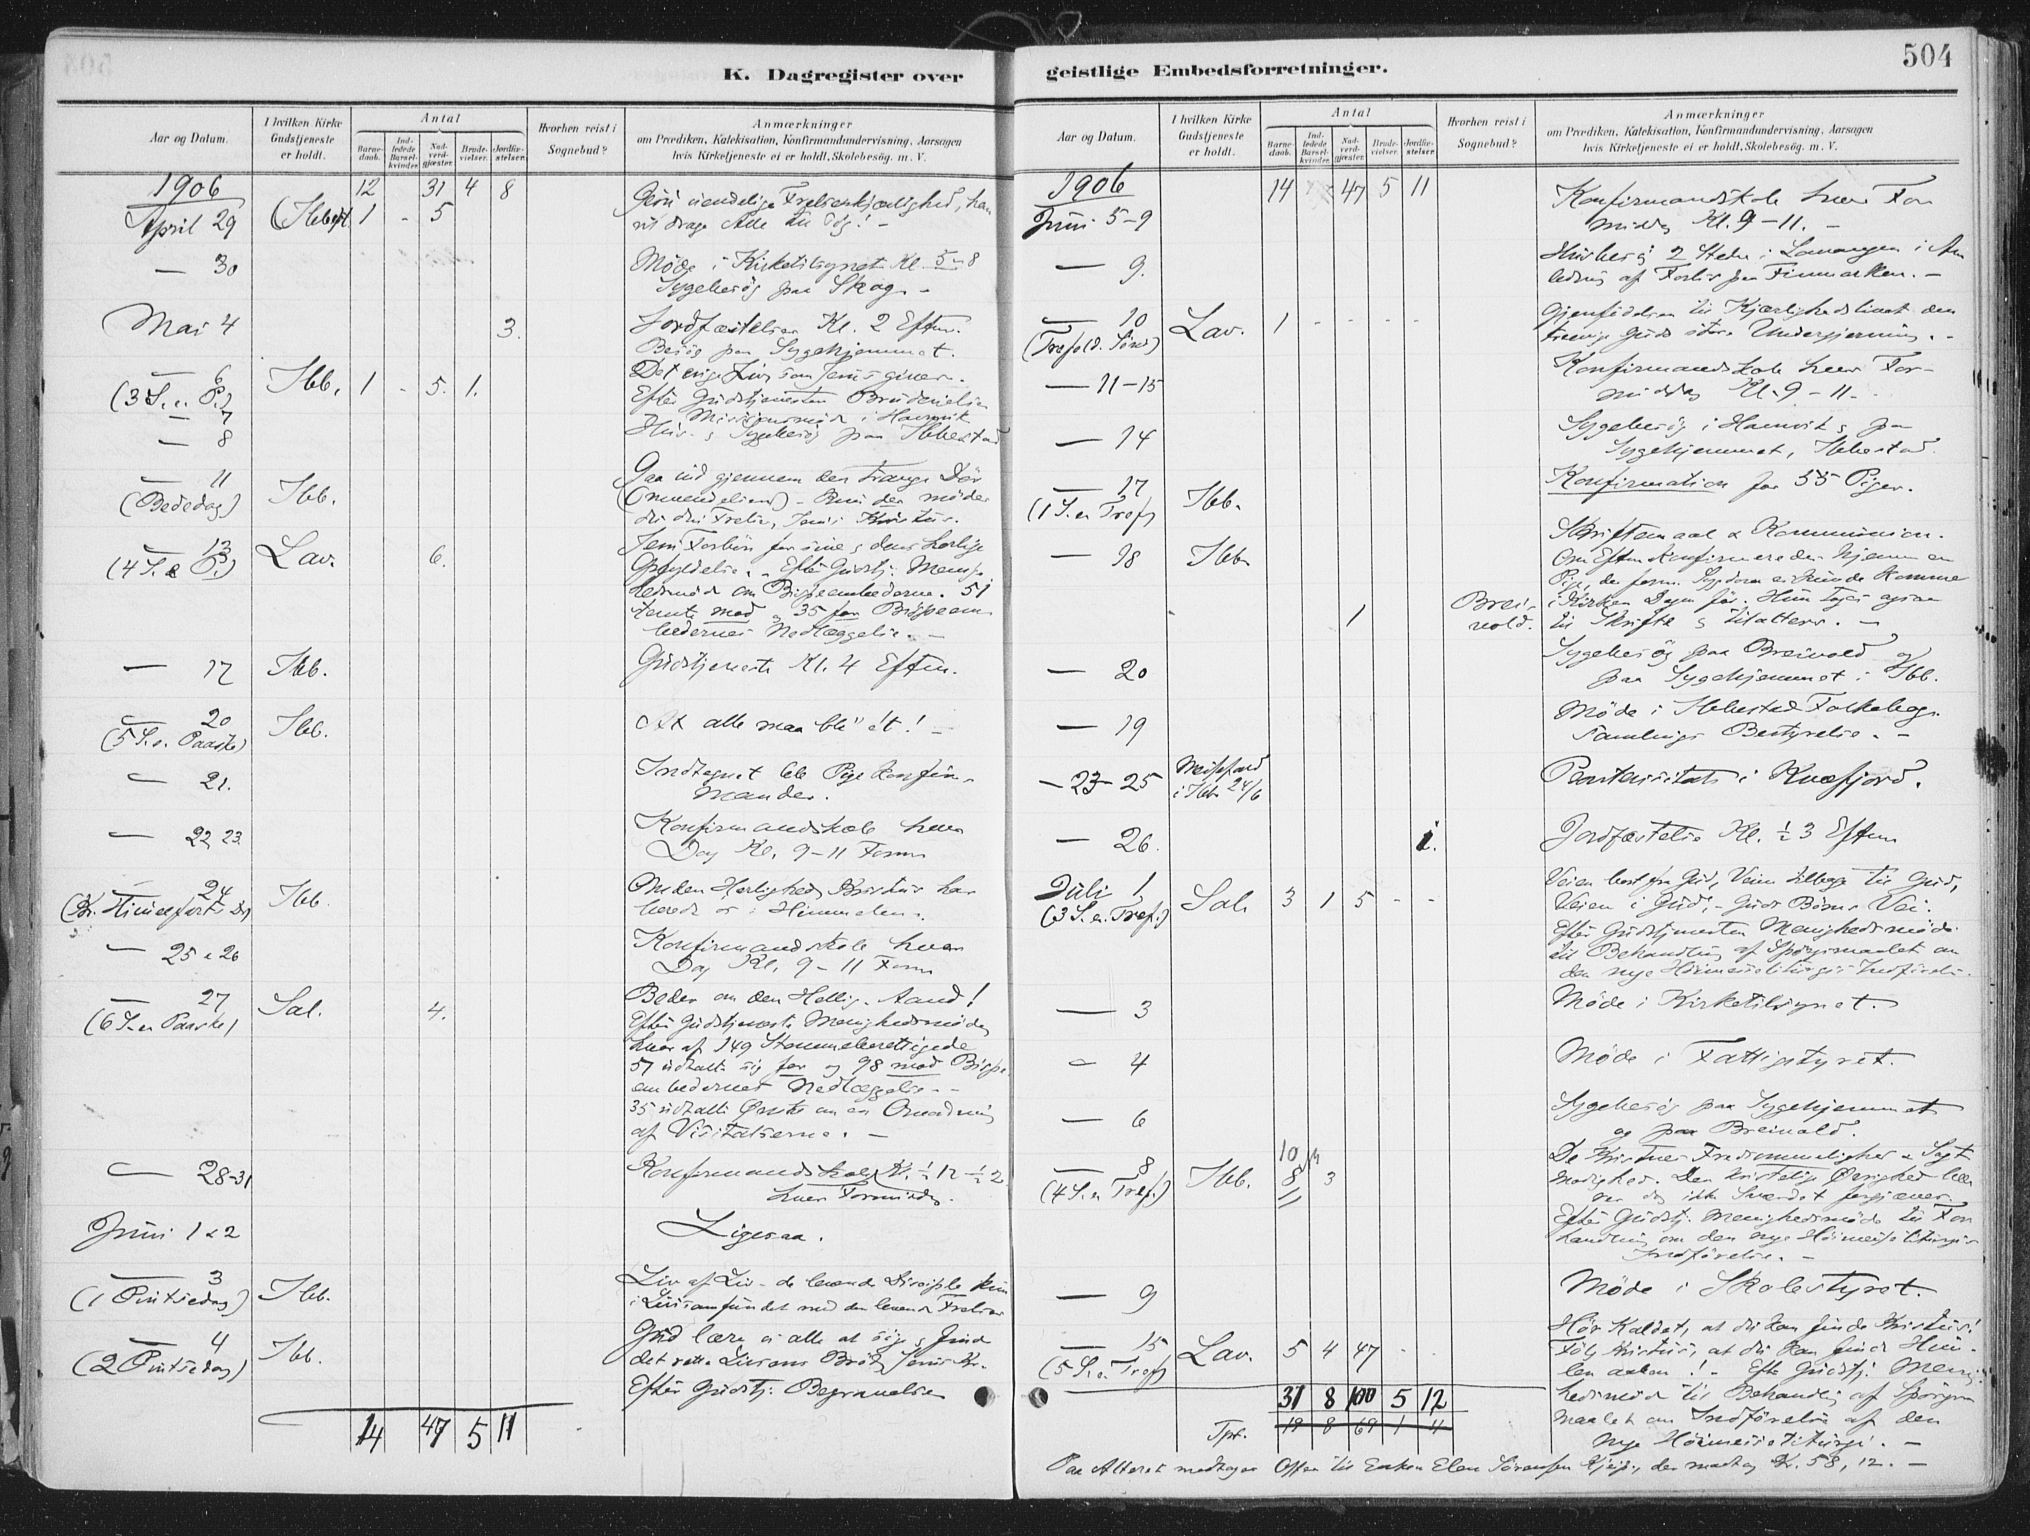 K. Dagregister over
Aar og Datum.
I hvilken Kirke Gudstjeneste er holdt.
Antal
Barne-daab.
Ind-ledede Barsel-kvinder.
Nad-verd-gjæster.
Brude-vielser.
Jordfæ-stelser.
Hvorhen reist i Sognebud?
Anmærkninger
om Prædiken, Katekisation, Konfirmandundervisning, Aarsagen
hvis Kirketjeneste ei er holdt, Skolebesög. m. V.
1906 12 31 4 8
April 29 (Ibbest. 1 - 5
Jesu uendelige Frelserkjærlighed, han
vil drage Alle til Sig! -
— 30
Møde i Kirketilsynet Kl. 5-8
Sygebesög paa Skog. -
Mai 4 3.
Jordfæstelser Kl. 2 Eftm.
Besög paa Sygehjemmet.
— 6 (3 S. e. P.) Ibb. 1 - 5. 1.
Det evige Liv som Jesus giver.
Efter Gudstjenesten Brudevielse
— 7
Missionsmøde i Hamnvik
— 8
Hus- & Sygebesög paa Ibbestad
— 11 (Bededag) Ibb.
Gaa ind gjennem den trange Dör
(Omvendelsen) - Kun der møder
du din Frelser, Jesus Kristus.
— 13 (4 S. e. P.) Lav. 6.
Jesu Forbön for sine & dens herlige
Opfyldelse. - Efter Gudstj: Menig-
hedsmöde om Bispeembederne. 51
stemte mod og 35 for Bispeem-
bedernes Nedlæggelse. -
— 17 Ibb.
Gudstjeneste Kl. 4 Eftm.
— 20 (5 S. e. Paaske) Ibb.
At alle maa bli ét! -
— 21.
Indtegnet ble Pige Konfir-
mander.
— 22, 23
Konfirmandskole hver
Dag Kl. 9-11 Form
— 24 (Kr. Himmelfarts Dg) Ibb.
Om den Herlighed, Kristus har
beredt os i Himmelen.
— 25 & 26
Konfirmandskole hver
Dag Kl. 9-11 Form
— 27 (6 S. e. Paaske) Sal. 4.
Beder om den Hellig-Aand!
Efter Gudstjeneste Menighedsmøde,
hvor af 149 Stemmeberettigede
51 udtalte sig for og 98 mod Bispe-
embedernes Nedlæggelse. -
35 udtalte Ønske om en Omordning
af Visitatserne. -
— 28-31
Konfirmandskole Kl. ½12-½2
hver Formiddag.
Juni 1 & 2
Ligesaa.
— 3 (1 Pintsedag) Ibb.
Liv af Liv - de levende Disciple kun
i Livssamfundet med den levende Frelser
— 4 (2 Pintsedag) Ibb.
Gud lære os alle at söge & finde
det rette Livsens Bröd, Jesus Kr.
Efter Gudstj: Begravelse
14 47 5 11
geistlige Embedsforretninger.
504
Aar og Datum.
I hvilken Kirke Gudstjeneste er holdt.
Antal
Barne-daab.
Ind-ledede Barsel-kvinder.
Nad-verd-gjæster.
Brude-vielser.
Jordfæ-stelser.
Hvorhen reist i Sognebud?
Anmærkninger
om Prædiken, Katekisation, Konfirmandundervisning, Aarsagen
hvis Kirketjeneste ei er holdt, Skolebesög. m. V.
1906 14 47 5 11
Juni 5-9
Konfirmandskole hver For
middag Kl. 9-11. -
— 9.
Husbesög 2 Steder i Lavangen i An
ledning af Forlis paa Finmarken. -
— 10 (Trefold. Sönd) Lav. 1 - - - -
Gjenfödelsen til Kjærlighedslivet den
treenige Guds störste Undergjerning. -
— 11-15
Konfirmandskole hver For-
middag Kl. 9-11.
— 14
Sygebesög i Hamnvik & paa
Sygehjemmet, Ibbestad.
— 17 (1 S. e. Tref) Ibb.
Konfirmation for 55 Piger.
— 18 Ibb
Skriftemaal & Kommunion.
Om Eftm konfirmeredes hjemme en
Pige, der form. Sygdom ei kunde komme
i Kirken Dagen för. Hun toges ogsaa
til Skrifte & til Alters. -
1 Brei-
vold.
— 20
Sygebesög paa Breivold og
paa Sygehjemmet i Ibb.
— 19
Møde i Ibbestad Folkebog-
samlings Bestyrelse. -
— 23-25 Messefald i Ibb 24/6
Provstevisitats i Kvæfjord.
— 26. 1.
Jordfæstelse Kl. ½3 Eftm
Juli 1 (3 S. e. Tref.) Sal. 3 1 5 - -
Veien bort fra Gud, Veien tilbage til Gud,
Veien i Gud, - Guds Börns Vei.
Efter Gudstjenesten Menighedsmöde
til Behandling af Spörgsmaalet om
den nye Höimesseliturgis Indförelse.
— 3
Møde i Kirketilsynet.
— 4
Møde i Fattigstyret.
— 6
Sygebesög paa Sygehjemmet
og paa Breivold.
— 8 (4 S. e. Tref.) Ibb. 10 8 3
De Kristnes Fredsommelighed & Sagt
modighed. Den kristelige Øvrighed bær
er dog ikke Sværdet forgjæves.
Efter Gudstj: Menighedsmöde til For
handling om den nye Höimesseliturgis
Indförelse. -
— 9
Møde i Skolestyret.
— 15 (5 S. e. Tref) Lav. 5 4 47 - -
Hör Kaldet, at du kan finde Kristus!
Fölg Kristus, at du kan finde Him-
len aaben! - Efter Gudstj: Menig-
hedsmöde til Behandling af Spörgs
maalet om Indförelse af den
nye Höimesseliturgi. -
31 8 100 5 12
Tpt. 19 8 69 1 4
Paa Alteret modtoges Offer til Enken Elen Sörensen, der modtog Kr. 58, 12. -